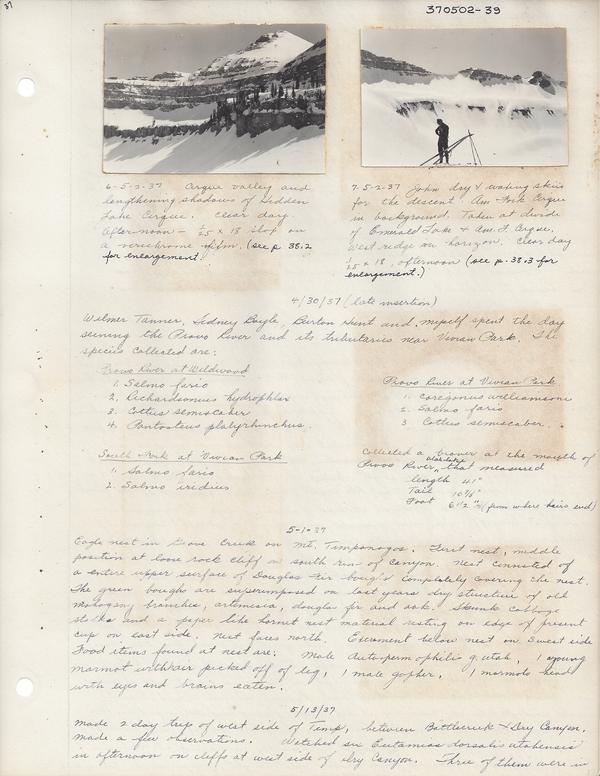 37
370502-39
6-5-2-37 Cirque valley and
lengthening shadows of Hidden
Lake Cirque. Clear day.
Afternoon - 1/25 x 18 stop on
a verichrome film. (see p 38:2
for enlargement.
7-5-2-37 John Ary & waxing skiis
for the descent. Am Fork Cirque
in background. Taken at divide
of Emerald Lake & Am F. Cirque.
West ridge on horizon. Clear day
1/25 x 18, afternoon (see p. 38:3 for
enlargement.)
4/30/37 (late insertion)
Wilmer Tanner, Sidney Boyle, Burton Hunt and myself spent the day
seining the Provo River and its tributaries near Vivian Park. The
species collected are:
Provo River at Wildwood
1. Salmo fario
2. Richardsonius hydrophlox
3. Cottus semiscaber
4. Pantosteus platyrhinchus.
Provo River at Vivian Park
1. Coregonus williamsoni
2. Salmo fario
3 Cottus semiscaber.
South Fork at Vivian Park
1. Salmo fario
2. Salmo irideus
Collected a beaver at the mouth of
Provo River, that measured
length 41"
Tail 10 1/8"
Foot 6 1/2" (from where hairs end)
5-1-37
Eagle nest in Grove Creek on Mt. Timponogos. First nest, middle
position at loose rock cliff on south run of canyon. Nest consisted of
a entire upper surface of Douglas Fir bough'd completely covering the nest.
The green boughs are superimposed on last years dry structure of old
mohogany branches, artemesia, douglas fir and oak. Skunk cabbage
stalks and a paper like hornet nest material resting on edge of present
cup on east side. Nest faces north. Excrement below nest on S west side
Food items found at nest are: Male g. utah, 1 young
marmot with hair picked off of leg, 1 male gopher. 1 marmots head
with eyes and brains eaten.
5/13/37
Made 2 day trip of west side of Timp, between Battlecreek & Dry Canyon.
Made a few observations. Watched six Eutamias dorsalis utahensis
in afternoon on cliffs at west side of Dry Canyon. Three of them were in